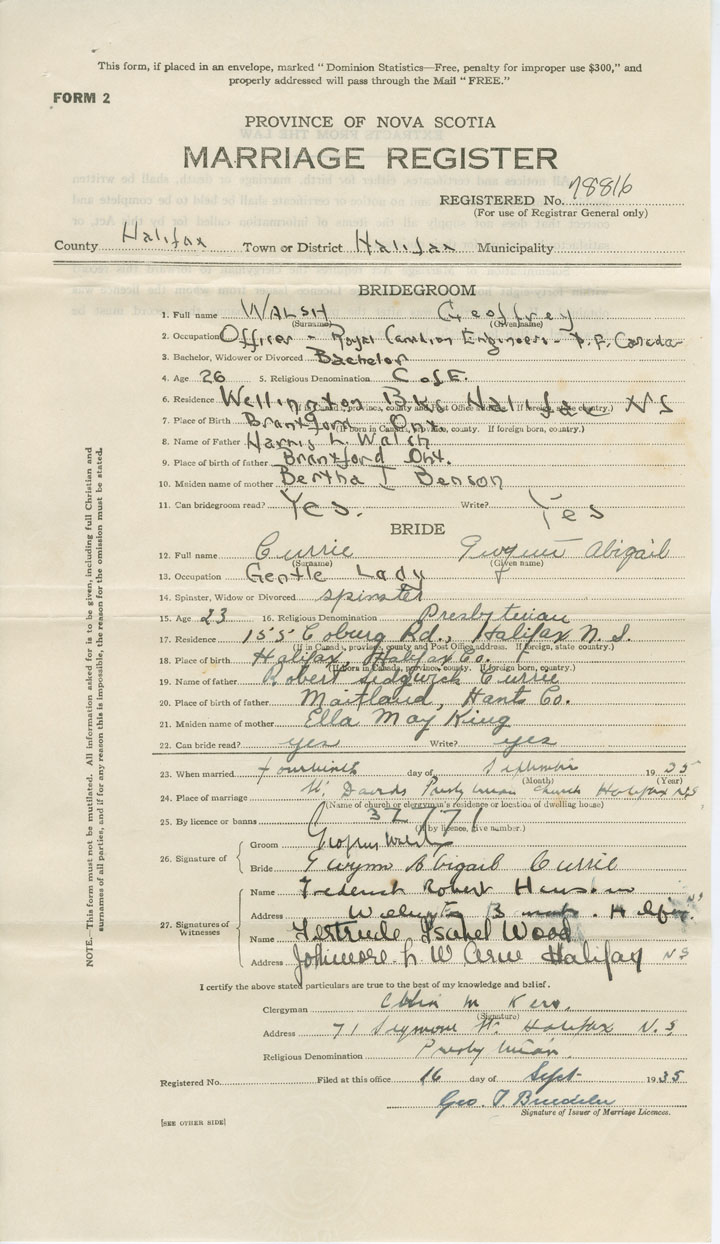 This form, if placed in an envelope, marked "Dominion Statistics—Free, penalty for improper use $300," and
properly addressed will pass through the Mail "FREE."
FORM 2
PROVINCE OF NOVA SCOTIA
MARRIAGE REGISTER
REGISTERED No. 78816
(For use of Registrar General only)
County Halifax Town or District Halifax Municipality
BRIDEGROOM
1. Full name WALSH Geoffrey
(Surname) (Given name)
2. Occupation Officer - Royal Canadian Engineers - P.F. Canada
3. Bachelor, Widower or Divorced Bachelor
4. Age 26 5. Religious Denomination C of E.
6. Residence Wellington Bks Halifax NS
(If in Canada, province, county and Post Office address. If foreign, state country.)
7. Place of Birth Brantford Ont.
(If born in Canada, province, county. If foreign born, country.)
8. Name of Father Harris L. Walsh
9. Place of birth of father Brantford Ont.
10. Maiden name of mother Bertha I Benson
11. Can bridegroom read? Yes. Write? Yes
BRIDE
12. Full name Currie Gwynn Abigail
(Surname) (Given name)
13. Occupation Gentle Lady
14. Spinster, Widow or Divorced spinster
15. Age 23 16. Religious Denomination Presbyterian
17. Residence 155 Coburg Rd., Halifax N.S.
(If in Canada, province, county and Post Office address. If foreign, state country.)
18. Place of birth Halifax, Halifax Co.
(If born in Canada, province, county. If foreign born, country.)
19. Name of father Robert Sidgwick Currie
20. Place of birth of father Maitland, Hants Co.
21. Maiden name of mother Ella May King
22. Can bride read? yes Write? yes
23. When married fourteenth day of September 1935
(Month) (Year)
24. Place of marriage St. Davids Presbyterian Church Halifax NS
(Name of church or clergyman's residence or location of dwelling house)
25. By licence or banns
(If by licence, give number.)
26. Signature of Groom Geoffrey Walsh
Bride Gwynn Abigail Currie
27. Signatures of Witnesses
Name Frederick Robert
Address Wellington Halifax NS
Name Gertrude Isabel Wood
Address Jollimore N W Arm Halifax NS
I certify the above stated particulars are true to the best of my knowledge and belief.
Clergyman M Kerr.
(Signature)
Address 71 Seymour St. Halifax N.S
Religious Denomination Presbyterian
Registered No. Filed at this office 16 day of Sept 1935
Geo. T.
Signature of Issuer of Marriage Licences.
[SEE OTHER SIDE]
NOTE.—This form must not be mutilated. All information asked for is to be given, including full Christian and
surnames of all parties, and if for any reason this is impossible, the reason for the omission must be stated.